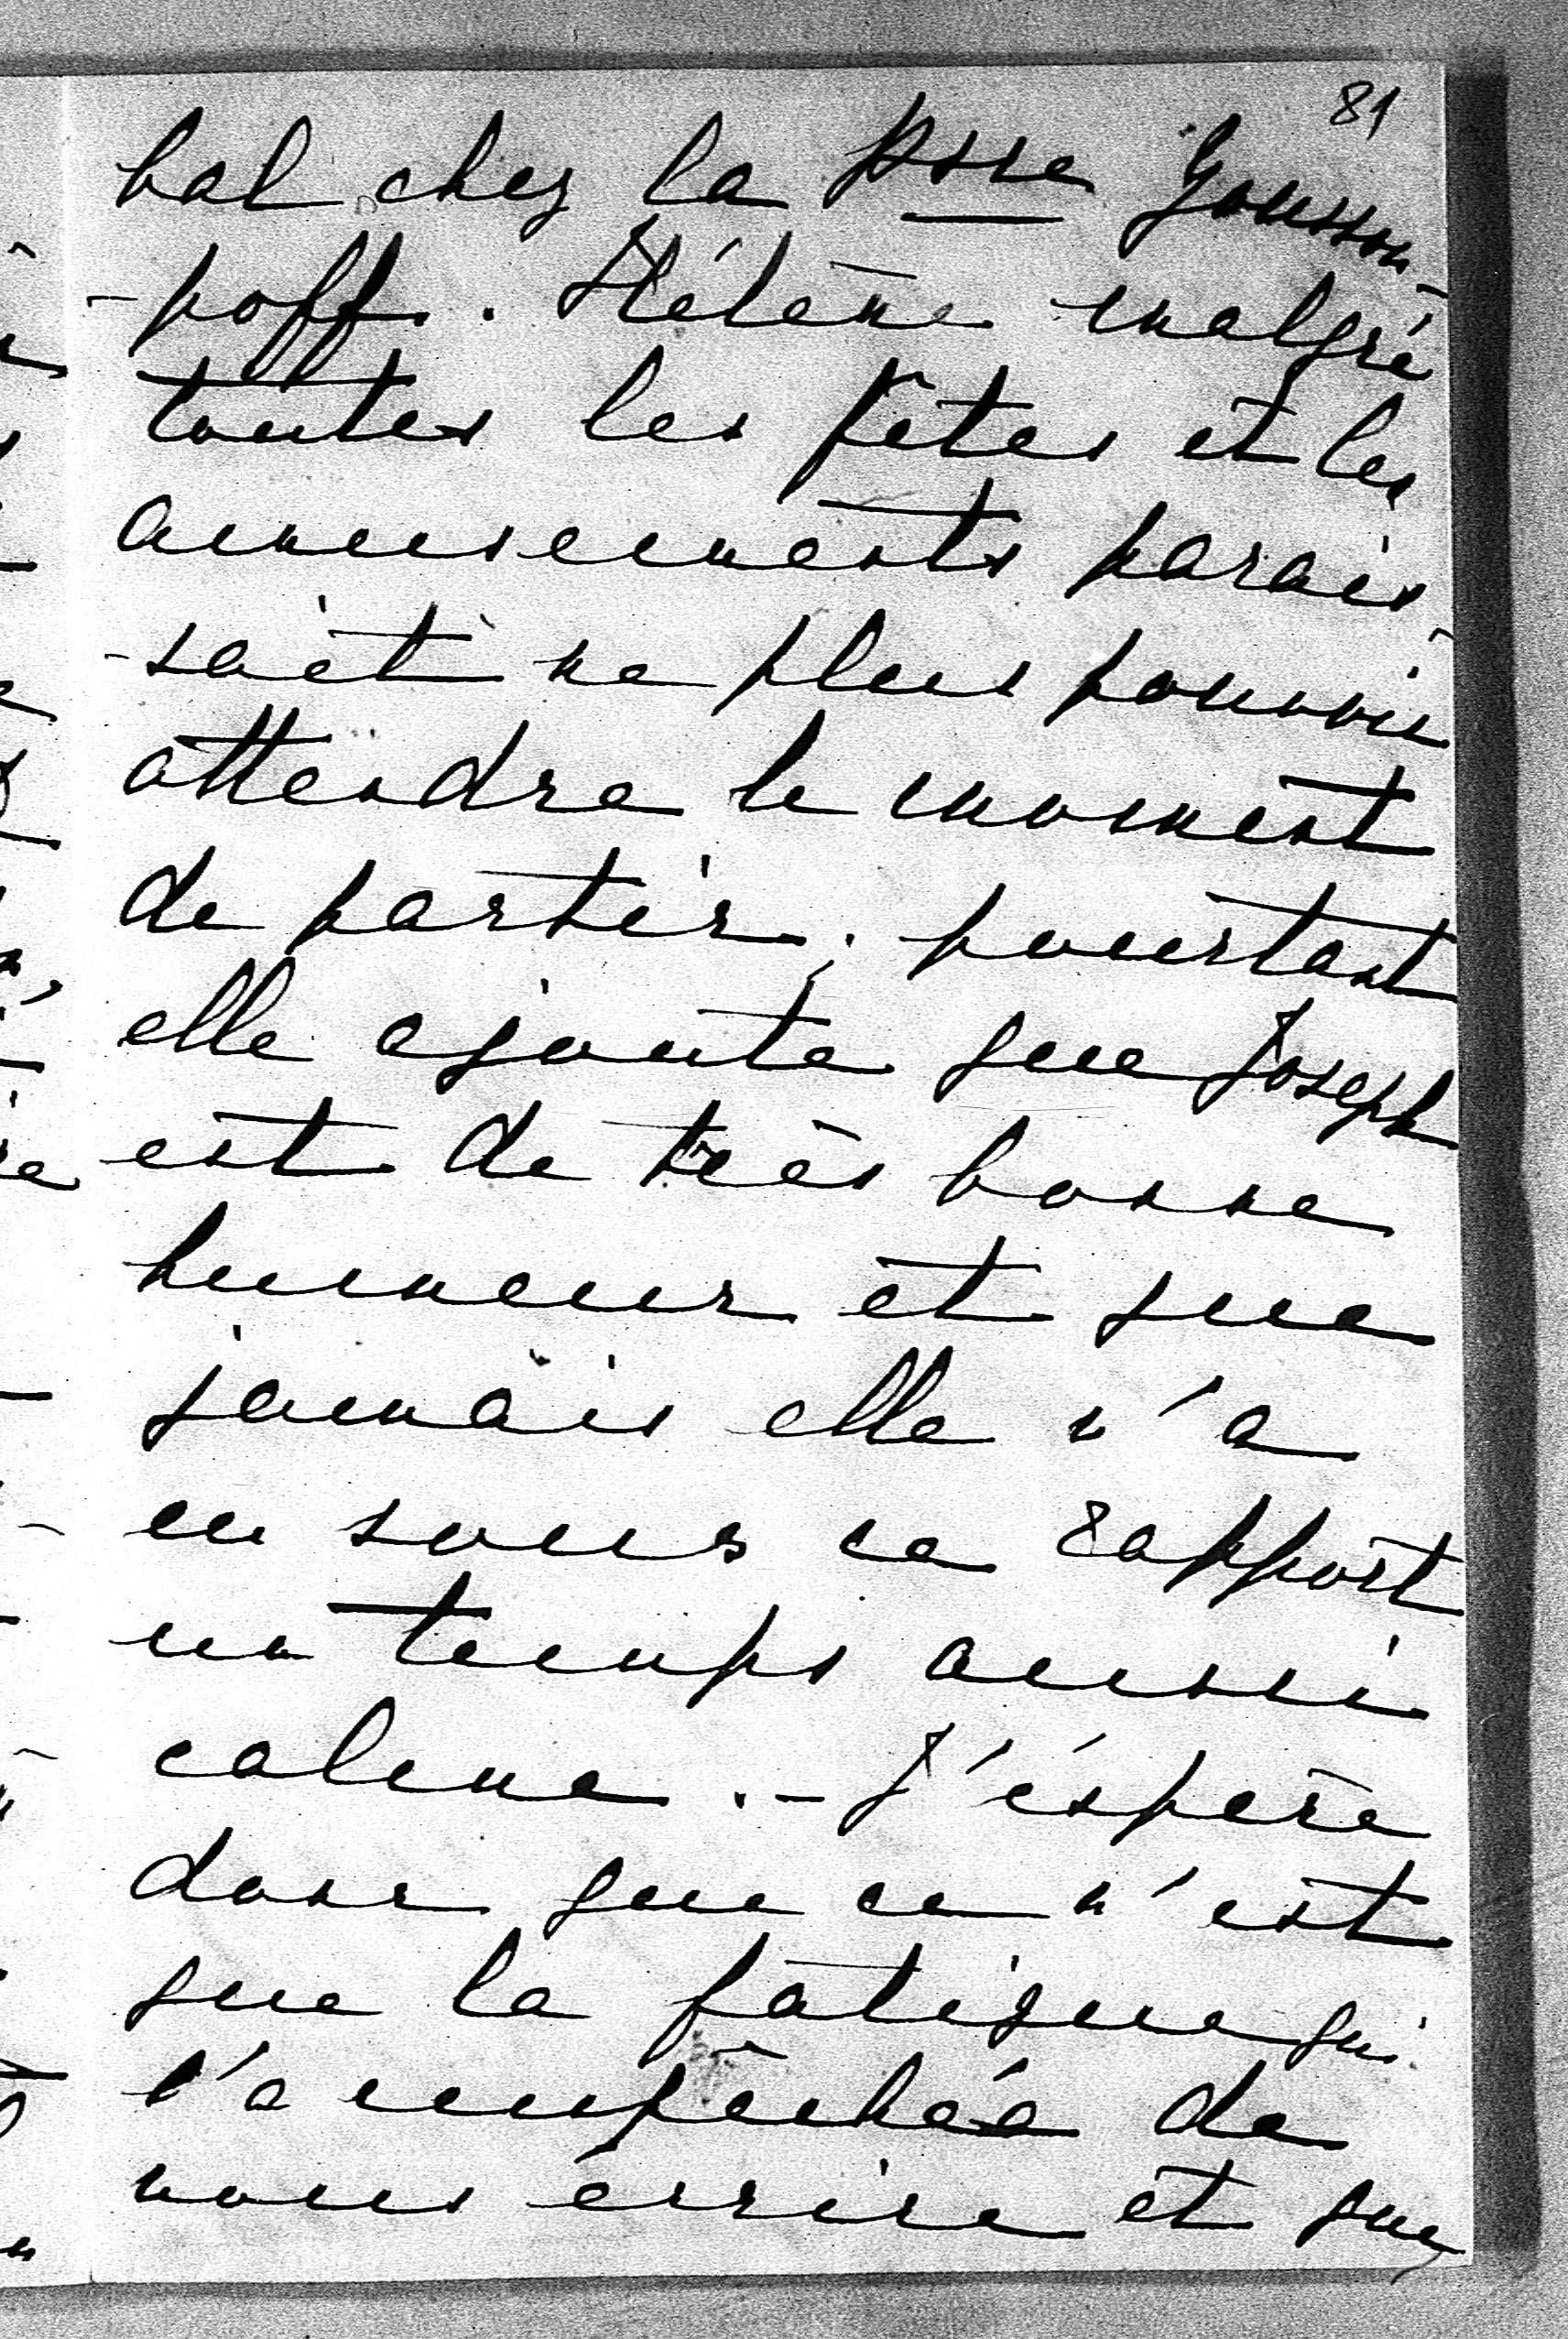 81
bal chez la Psse Youssou
-poff. Hélène malgré
toutes les fêtes et les
amusements parais
-sait ne plus pouvoir
attendre le moment
de partir; pourtant
elle ajoute que Joseph
est de très bonne
humeur et que
jamais elle n'a
eu sous ce rapport
un temps aussi
calme. - J'éspère
donc que ce n'est
que la fatigue qui
l'a empêchée de
nous écrire et que